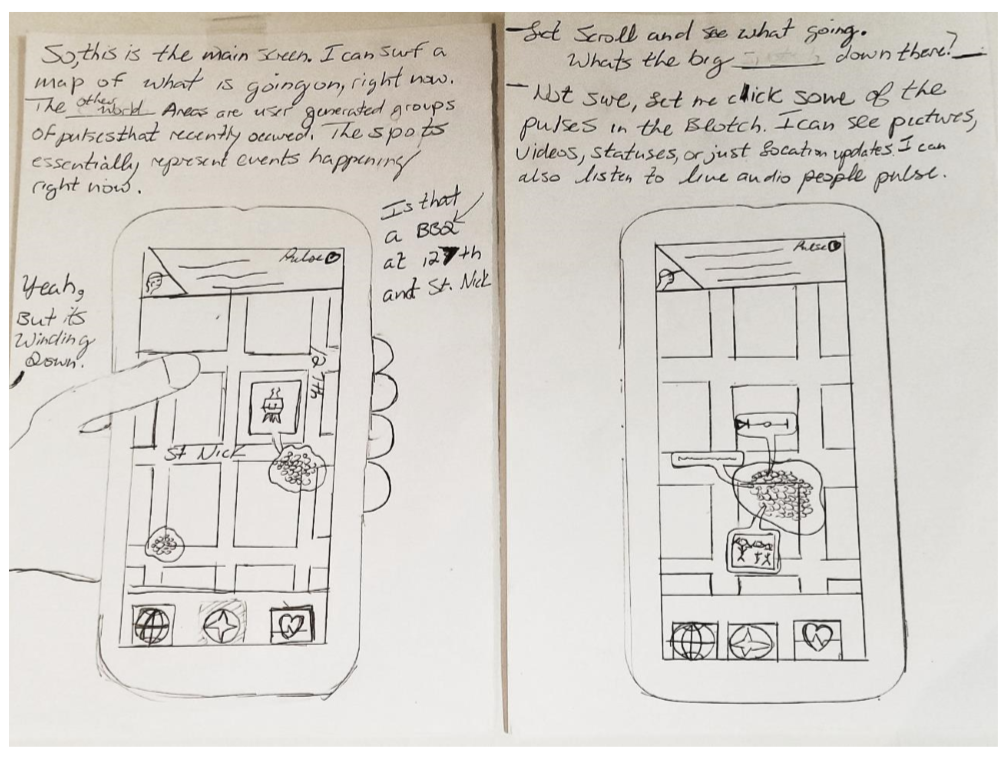 So, this is the main screen. I can surf a
map of what is going on, right now.
The other world Areas are user generated groups
of pulses that recently occured. The spots
essentially represent events happening
right now.
Is that
a BBQ
at 127th
and St. Nick
Yeah,
But its
Winding
Down.
Pulse
127th
St Nick
- Let Scroll and see what going.
Whats the big down there?
- Not sure, Let me click some of the
pulses in the Blotch. I can see pictures,
videos, statuses, or just location updates. I can
also listen to live audio people pulse.
Pulse